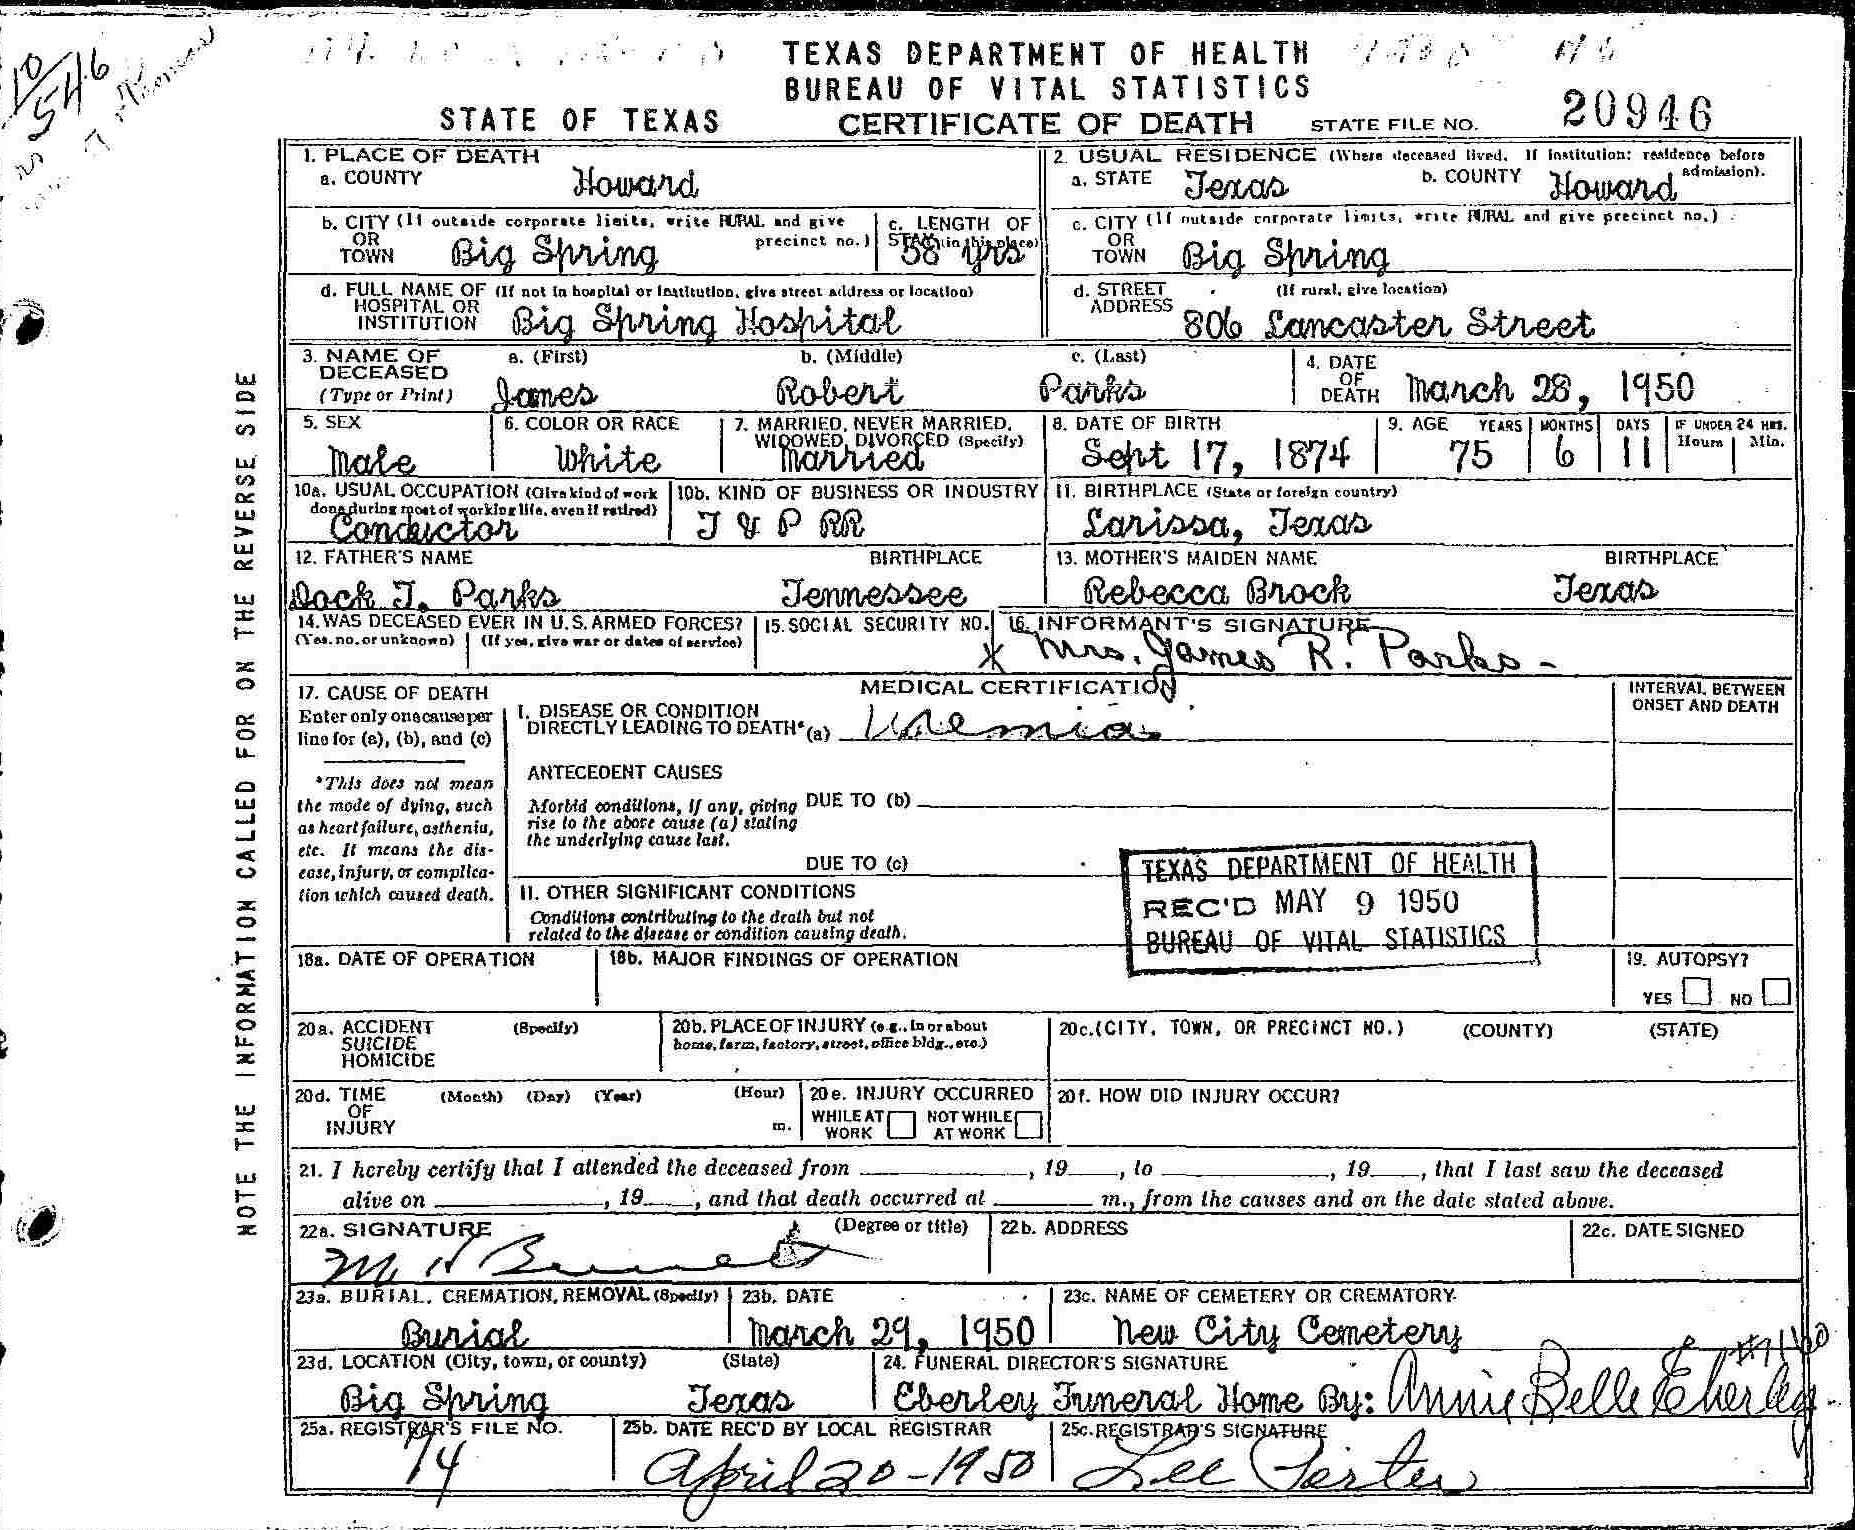 10
546
TEXAS DEPARTMENT OF HEALTH
BUREAU OF VITAL STATISTICS
STATE OF TEXAS CERTIFICATE OF DEATH STATE FILE NO. 20946
NOTE THE INFORMATION CALLED FOR ON THE REVERSE SIDE
1. PLACE OF DEATH
a. COUNTY Howard
2. USUAL RESIDENCE (Where deceased lived. If institution: residence before admission).
a. STATE Texas b. COUNTY Howard
b. CITY (If outside corporate limits, write RURAL and give precinct no.)
OR
TOWN Big Spring
c. LENGTH OF
STAY (in this place) 58 yrs
c. CITY (If outside corporate limits, write RURAL and give precinct no.)
OR
TOWN Big Spring
d. FULL NAME OF (If not in hospital or institution, give street address or location)
HOSPITAL OR
INSTITUTION Big Spring Hospital
d. STREET (If rural, give location)
ADDRESS 806 Lancaster Street
3. NAME OF DECEASED (Type or Print)
a. (First) b. (Middle) c. (Last)
James Robert Parks
4. DATE OF DEATH March 28, 1950
5. SEX Male
6. COLOR OR RACE White
7. MARRIED, NEVER MARRIED, WIDOWED, DIVORCED (Specify) Married
8. DATE OF BIRTH Sept 17, 1874
9. AGE YEARS MONTHS DAYS IF UNDER 24 HRS. Hours Min.
75 6 11
10a. USUAL OCCUPATION (Give kind of work done during most of working life, even if retired) Conductor
10b. KIND OF BUSINESS OR INDUSTRY T & P RR
11. BIRTHPLACE (State or foreign country) Larissa, Texas
12. FATHER'S NAME BIRTHPLACE
Dock T. Parks Tennessee
13. MOTHER'S MAIDEN NAME BIRTHPLACE
Rebecca Brock Texas
14. WAS DECEASED EVER IN U.S. ARMED FORCES?
(Yes, no, or unknown) (If yes, give war or dates of service)
15. SOCIAL SECURITY NO.
16. INFORMANT'S SIGNATURE
x Mrs. James R. Parks -
17. CAUSE OF DEATH
Enter only one cause per
line for (a), (b), and (c)
*This does not mean
the mode of dying, such
as heart failure, asthenia,
etc. It means the dis-
ease, injury, or complica-
tion which caused death.
MEDICAL CERTIFICATION
INTERVAL BETWEEN
ONSET AND DEATH
I. DISEASE OR CONDITION
DIRECTLY LEADING TO DEATH* (a) Uremia
ANTECEDENT CAUSES
Morbid conditions, if any, giving
rise to the above cause (a) stating
the underlying cause last.
DUE TO (b)
DUE TO (c)
II. OTHER SIGNIFICANT CONDITIONS
Conditions contributing to the death but not
related to the disease or condition causing death.
TEXAS DEPARTMENT OF HEALTH
REC'D MAY 9 1950
BUREAU OF VITAL STATISTICS
18a. DATE OF OPERATION
18b. MAJOR FINDINGS OF OPERATION
19. AUTOPSY?
YES NO
20a. ACCIDENT (Specify)
SUICIDE
HOMICIDE
20b. PLACE OF INJURY (e.g., in or about
home, farm, factory, street, office bldg., etc.)
20c. (CITY, TOWN, OR PRECINCT NO.) (COUNTY) (STATE)
20d. TIME (Month) (Day) (Year) (Hour)
OF
INJURY m.
20e. INJURY OCCURRED
WHILE AT WORK NOT WHILE AT WORK
20f. HOW DID INJURY OCCUR?
21. I hereby certify that I attended the deceased from , 19 , to , 19 , that I last saw the deceased
alive on , 19 , and that death occurred at m., from the causes and on the date stated above.
22a. SIGNATURE (Degree or title)
22b. ADDRESS
22c. DATE SIGNED
M H Bennett
23a. BURIAL, CREMATION, REMOVAL (Specify) Burial
23b. DATE March 29, 1950
23c. NAME OF CEMETERY OR CREMATORY New City Cemetery
23d. LOCATION (City, town, or county) (State)
Big Spring Texas
24. FUNERAL DIRECTOR'S SIGNATURE
Eberley Funeral Home By: Annie Belle Eberley
25a. REGISTRAR'S FILE NO. 74
25b. DATE REC'D BY LOCAL REGISTRAR April 20-1950
25c. REGISTRAR'S SIGNATURE Lee Porter